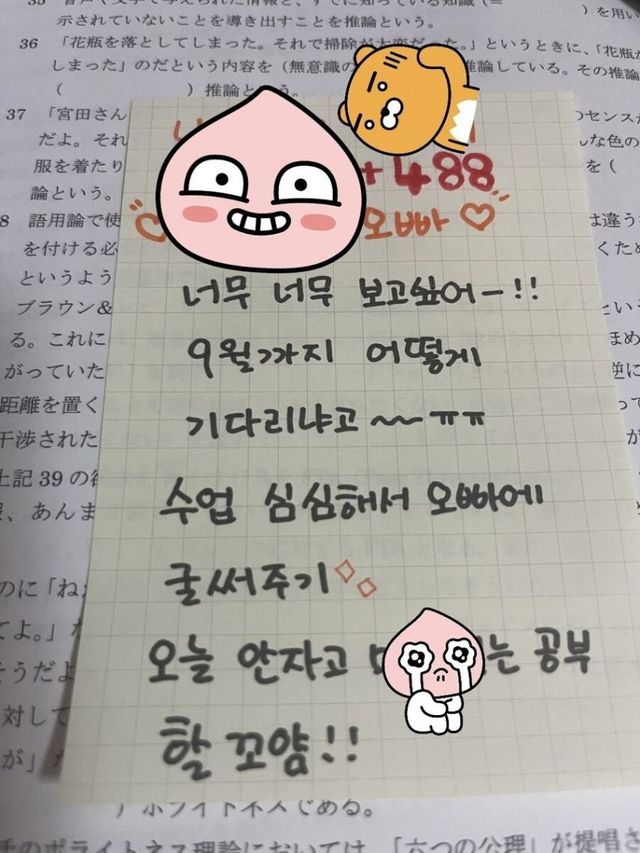 示されていないことを導き出すことを推論という。
36 「花瓶を落としてしまった。それで掃除が大変だった。」というときに、「花瓶が
しまった」のだという内容を(無意識の
推論している。その推論
( )推論という。
37 「宮田さん
のセンスが
だよ。それ
んな色の
服を着たり
を(
論という。
+488
오빠♡
8 語用論で使
は違う
を付ける必
くため
というよう
너무 너무 보고싶어-!!
ブラウン&
という
る。これに
ほめ
9월까지 어떻게
がっていた
逆に
距離を置く
기다리냐고 ~~ㅠㅠ
干渉された
上記39の
수업 심심해서 오빠에
、あんま
글써주기
のに「ねえ
てよ。」
오늘 안자고
는 공부
そうだよ
対して
할 꼬얌!!
が」
)ポライトネスである。
のポライトネス理論においては、「六つの公理」が提唱さ